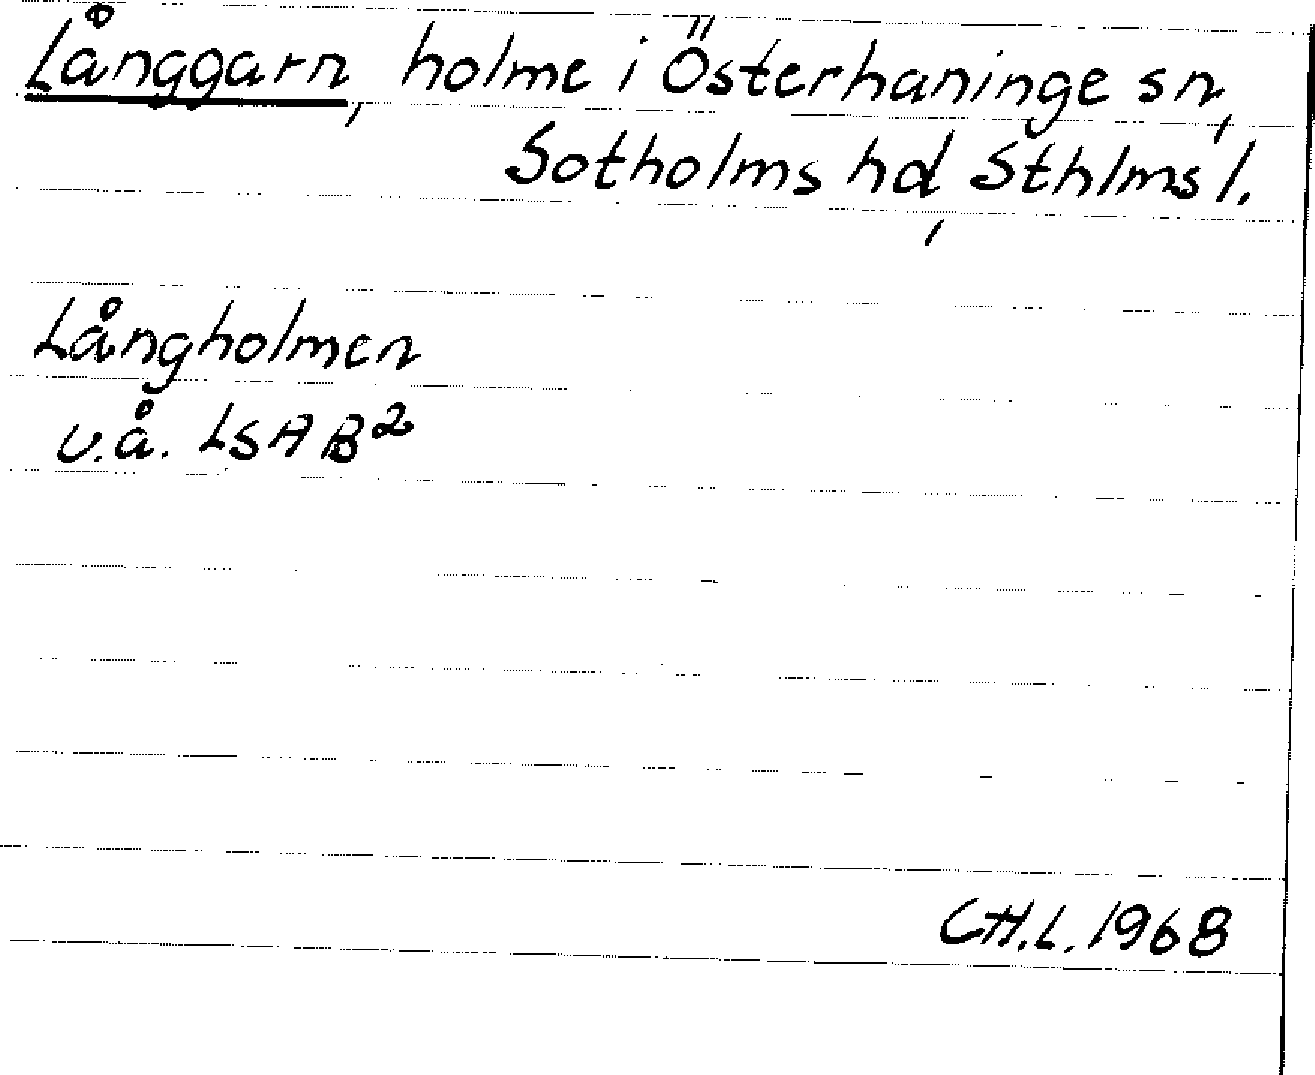 Långgarn, holme i Österhaninge sn,
Sotholms hd, Sthlms l.
Långholmen
u.å. LSA B²
C.H.L. 1968